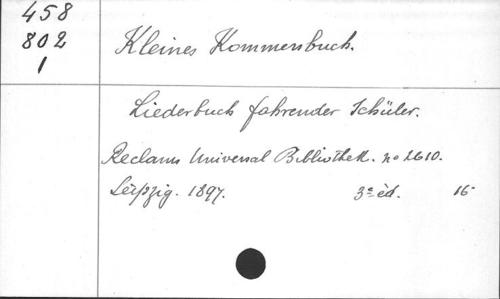 458
802
1
Kleines Kommersbuch.
Liederbuch fahrender Schüler.
Reclams Universal Bibliothek. no 2610.
Leipzig. 1897. 3e éd. 16